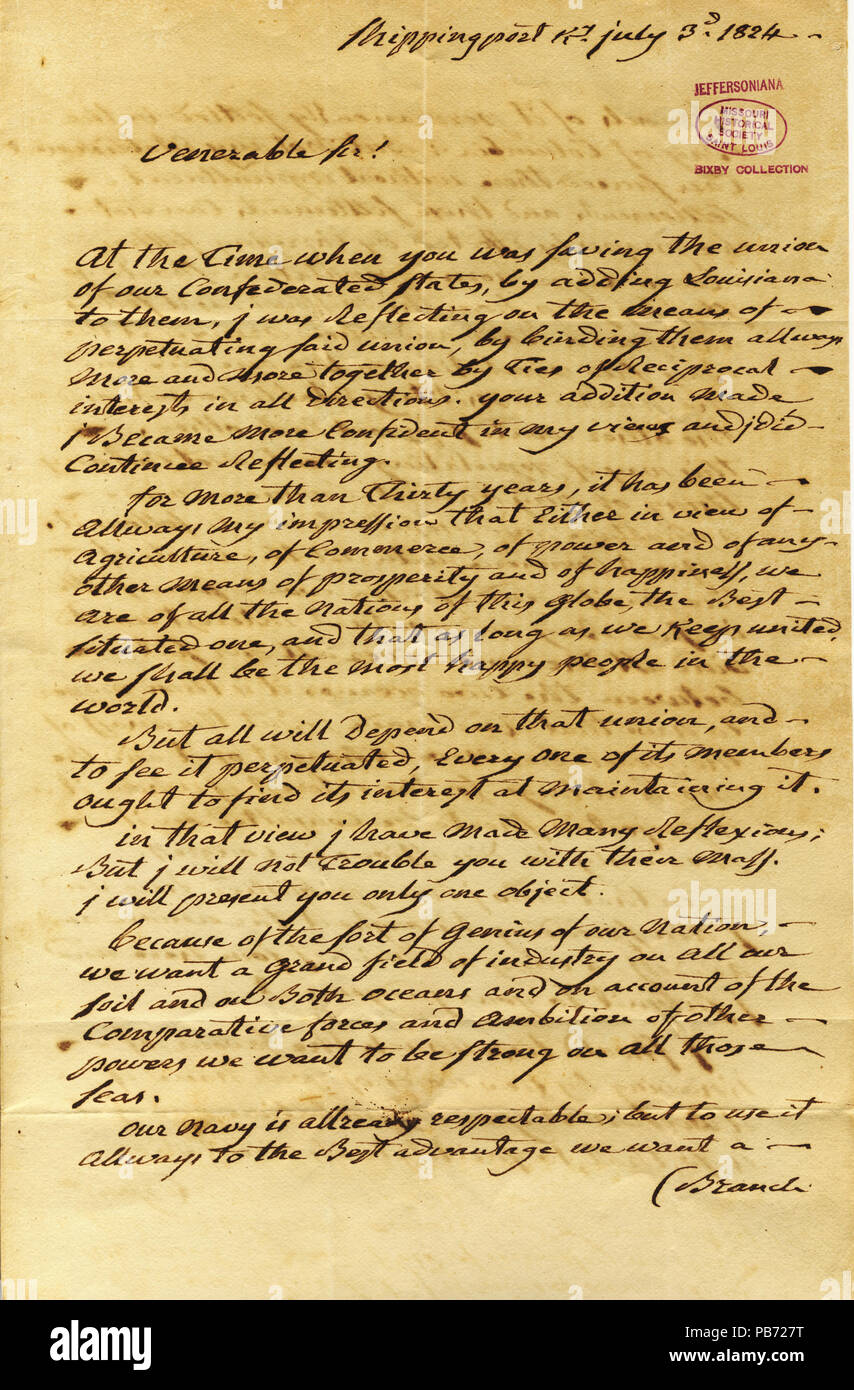 Shippingport Ky. july 3d. 1824
JEFFERSONIANA
MISSOURI
HISTORICAL
SOCIETY
SAINT LOUIS
BIXBY COLLECTION
Venerable sir!
At the Time when you was saving the union
of our Confederated states, by adding Louisiana
to them, j was Reflecting on the Means of
perpetuating said union, by binding them allways
More and More together by Ties of Reciprocal
interests in all Directions. your addition Made
j Became More Confident in my views and j did
Continue Reflecting.
for More than Thirty years, it has been
Allways My impression that Either in view of
Agriculture, of Commerce, of power and of any
other Means of prosperity and of happiness, we
Are of all the Nations of this Globe, the Best
situated one, and that as long as we Keep united,
we shall be the Most happy people in the
world.
But all will Depend on that union, and
to see it perpetuated, Every one of its Members
ought to find its interest at Maintaining it.
in that view j have Made Many Reflexions;
But j will Not Trouble you with their Mass.
j will present you only one object.
because of the sort of Genius of our Nation,
we want a Grand field of industry on all our
soil and on Both oceans and on account of the
Comparative forces and Ambition of other
powers we want to be strong on all those
seas.
our Navy is allready respectable; but to use it
Allways to the Best advantage we want a
(Branch
alamy
alamy stock photo
PB727T
www.alamy.com